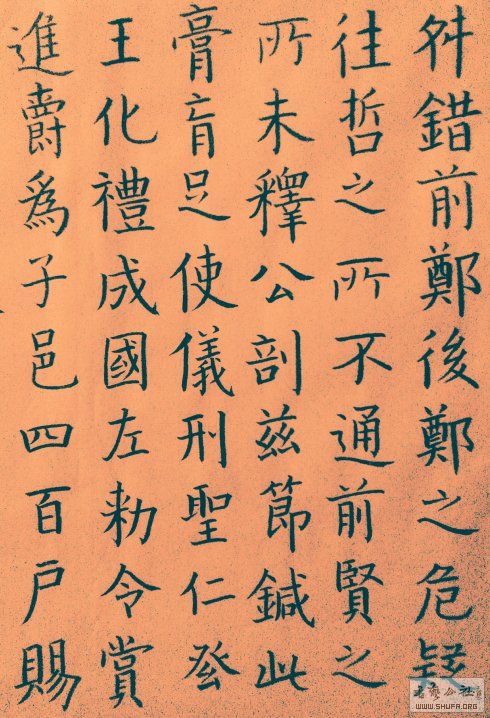 舛錯前鄭後鄭之危疑
往哲之所不通前賢之
所未釋公剖茲節鍼此
膏肓足使儀刑聖仁癹
王化禮成國左勑令賞
進爵爲子邑四百戶賜
書藝公社
WWW.SHUFA.ORG